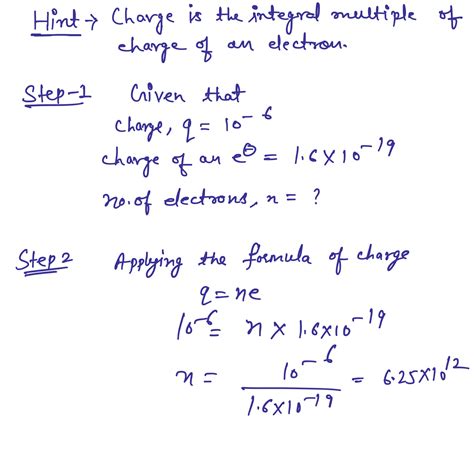 Hint → Charge is the integral multiple of
charge of an electron.
Step-1 Given that
charge, q = 10⁻⁶
charge of an e⊖ = 1.6×10⁻¹⁹
no. of electrons, n = ?
Step 2 Applying the formula of charge
q = ne
10⁻⁶ = n × 1.6×10⁻¹⁹
n = 10⁻⁶ / 1.6×10⁻¹⁹ = 6.25×10¹²